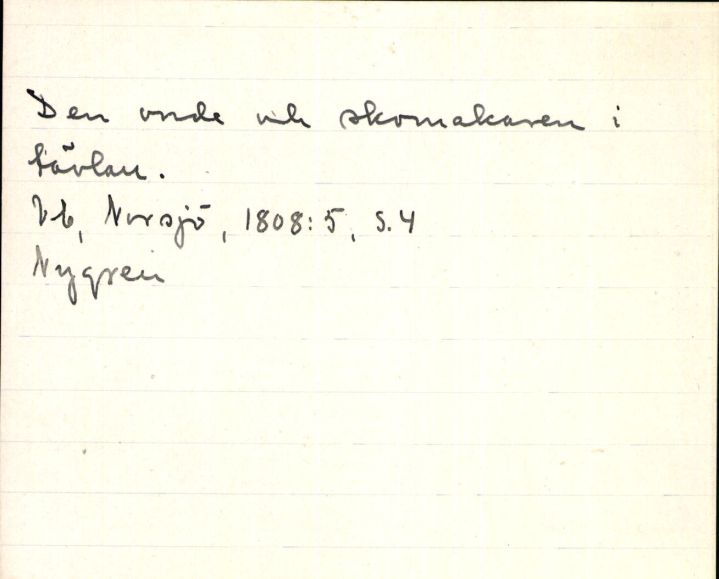 Den onde och skomakaren i
tävlan.
Vb, Norsjö, 1808:5, S.4
Nygren